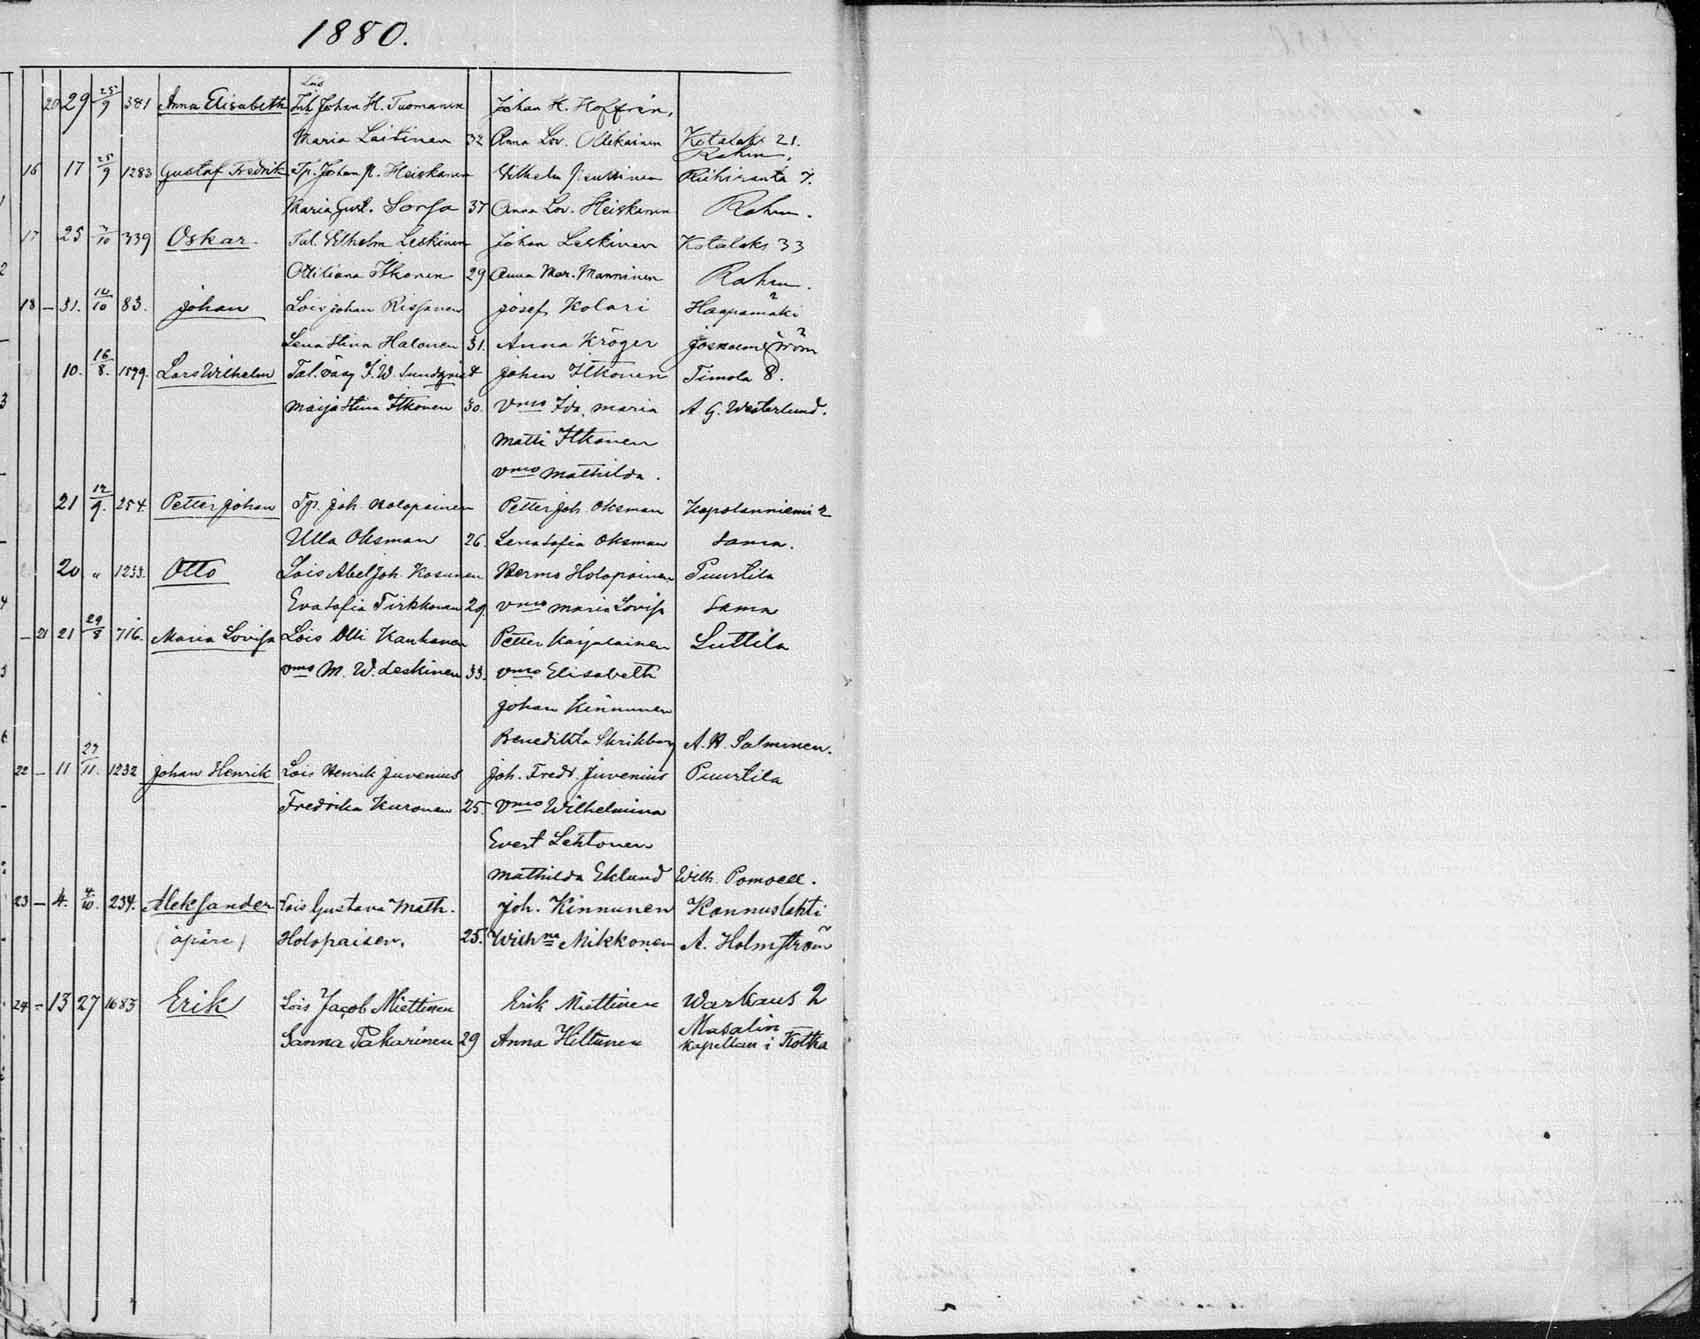 1880.
20 29 25/9 381 Anna Elisabeth Johan H. Tuomainen Johan H. Hoffrén,
Maria Laitinen 32 Anna Lov. Kotalaks 21.
Rahm.
16 17 25/9 1283 Gustaf Fredrik Johan P. Heiskanen Vilhelm 7.
Maria Gust. Sorsa 37 Anna Lov. Heiskanen Rahm.
17 25 3/10 339 Oskar Tal. Vilhelm Leskinen Johan Leskinen Kotalaks 33
Ottiliana Itkonen 29 Anna Mar. Manninen Rahm.
18 — 31. 10/10 83. Johan Lois Johan Rissanen Josef Kolari Haapamäki 2
Lena Stina Halonen 31. Anna Kröger
10. 16/8. 1599. Lars Wilhelm Tal. J. W. Sundqvist Johan Itkonen Timola 8.
Maija Stina Itkonen 30. vmo Ida Maria A. G. Westerlund.
Matti Itkonen
vmo Mathilda.
21 12/9. 254. Petter Johan Joh. Holopainen Petter Joh. Oksman Kopolanniemi 2
Ulla Oksman 26. Lena Sofia Oksman Sama.
20 " 1233. Otto Lois Abel Joh. Kosunen Hermo Holopainen Puurtila
Eva Sofia Tirkkonen 29. vmo Maria Lovisa Sama
— 21 21 29/8 716. Maria Lovisa Lois Olli Kauhanen Petter Karjalainen Luttila
vmo M. W. Leskinen 33. vmo Elisabeth
Johan Kinnunen
Benedikta Skrikberg A. H. Salminen.
22 — 11 27/11. 1232 Johan Henrik Lois Henrik Juvenius Joh. Fredr. Juvenius Puurtila
Fredrika Kuronen 25. vmo Wilhelmina
Evert Lehtonen
Mathilda Eklund Wilh. Pomoell.
23 — 4. 4/10. 234. Aleksander Lois Gustava Math. Joh. Kinnunen Konnuslahti
(äpäre) Holopainen. 25. Wilhna Mikkonen A. Holmström
24 = 13 27 1683 Erik Lois Jacob Miettinen Erik Miettinen Warkaus 2
Sanna Pakarinen 29 Anna Hiltunen Masalin
kapellan i Kotka